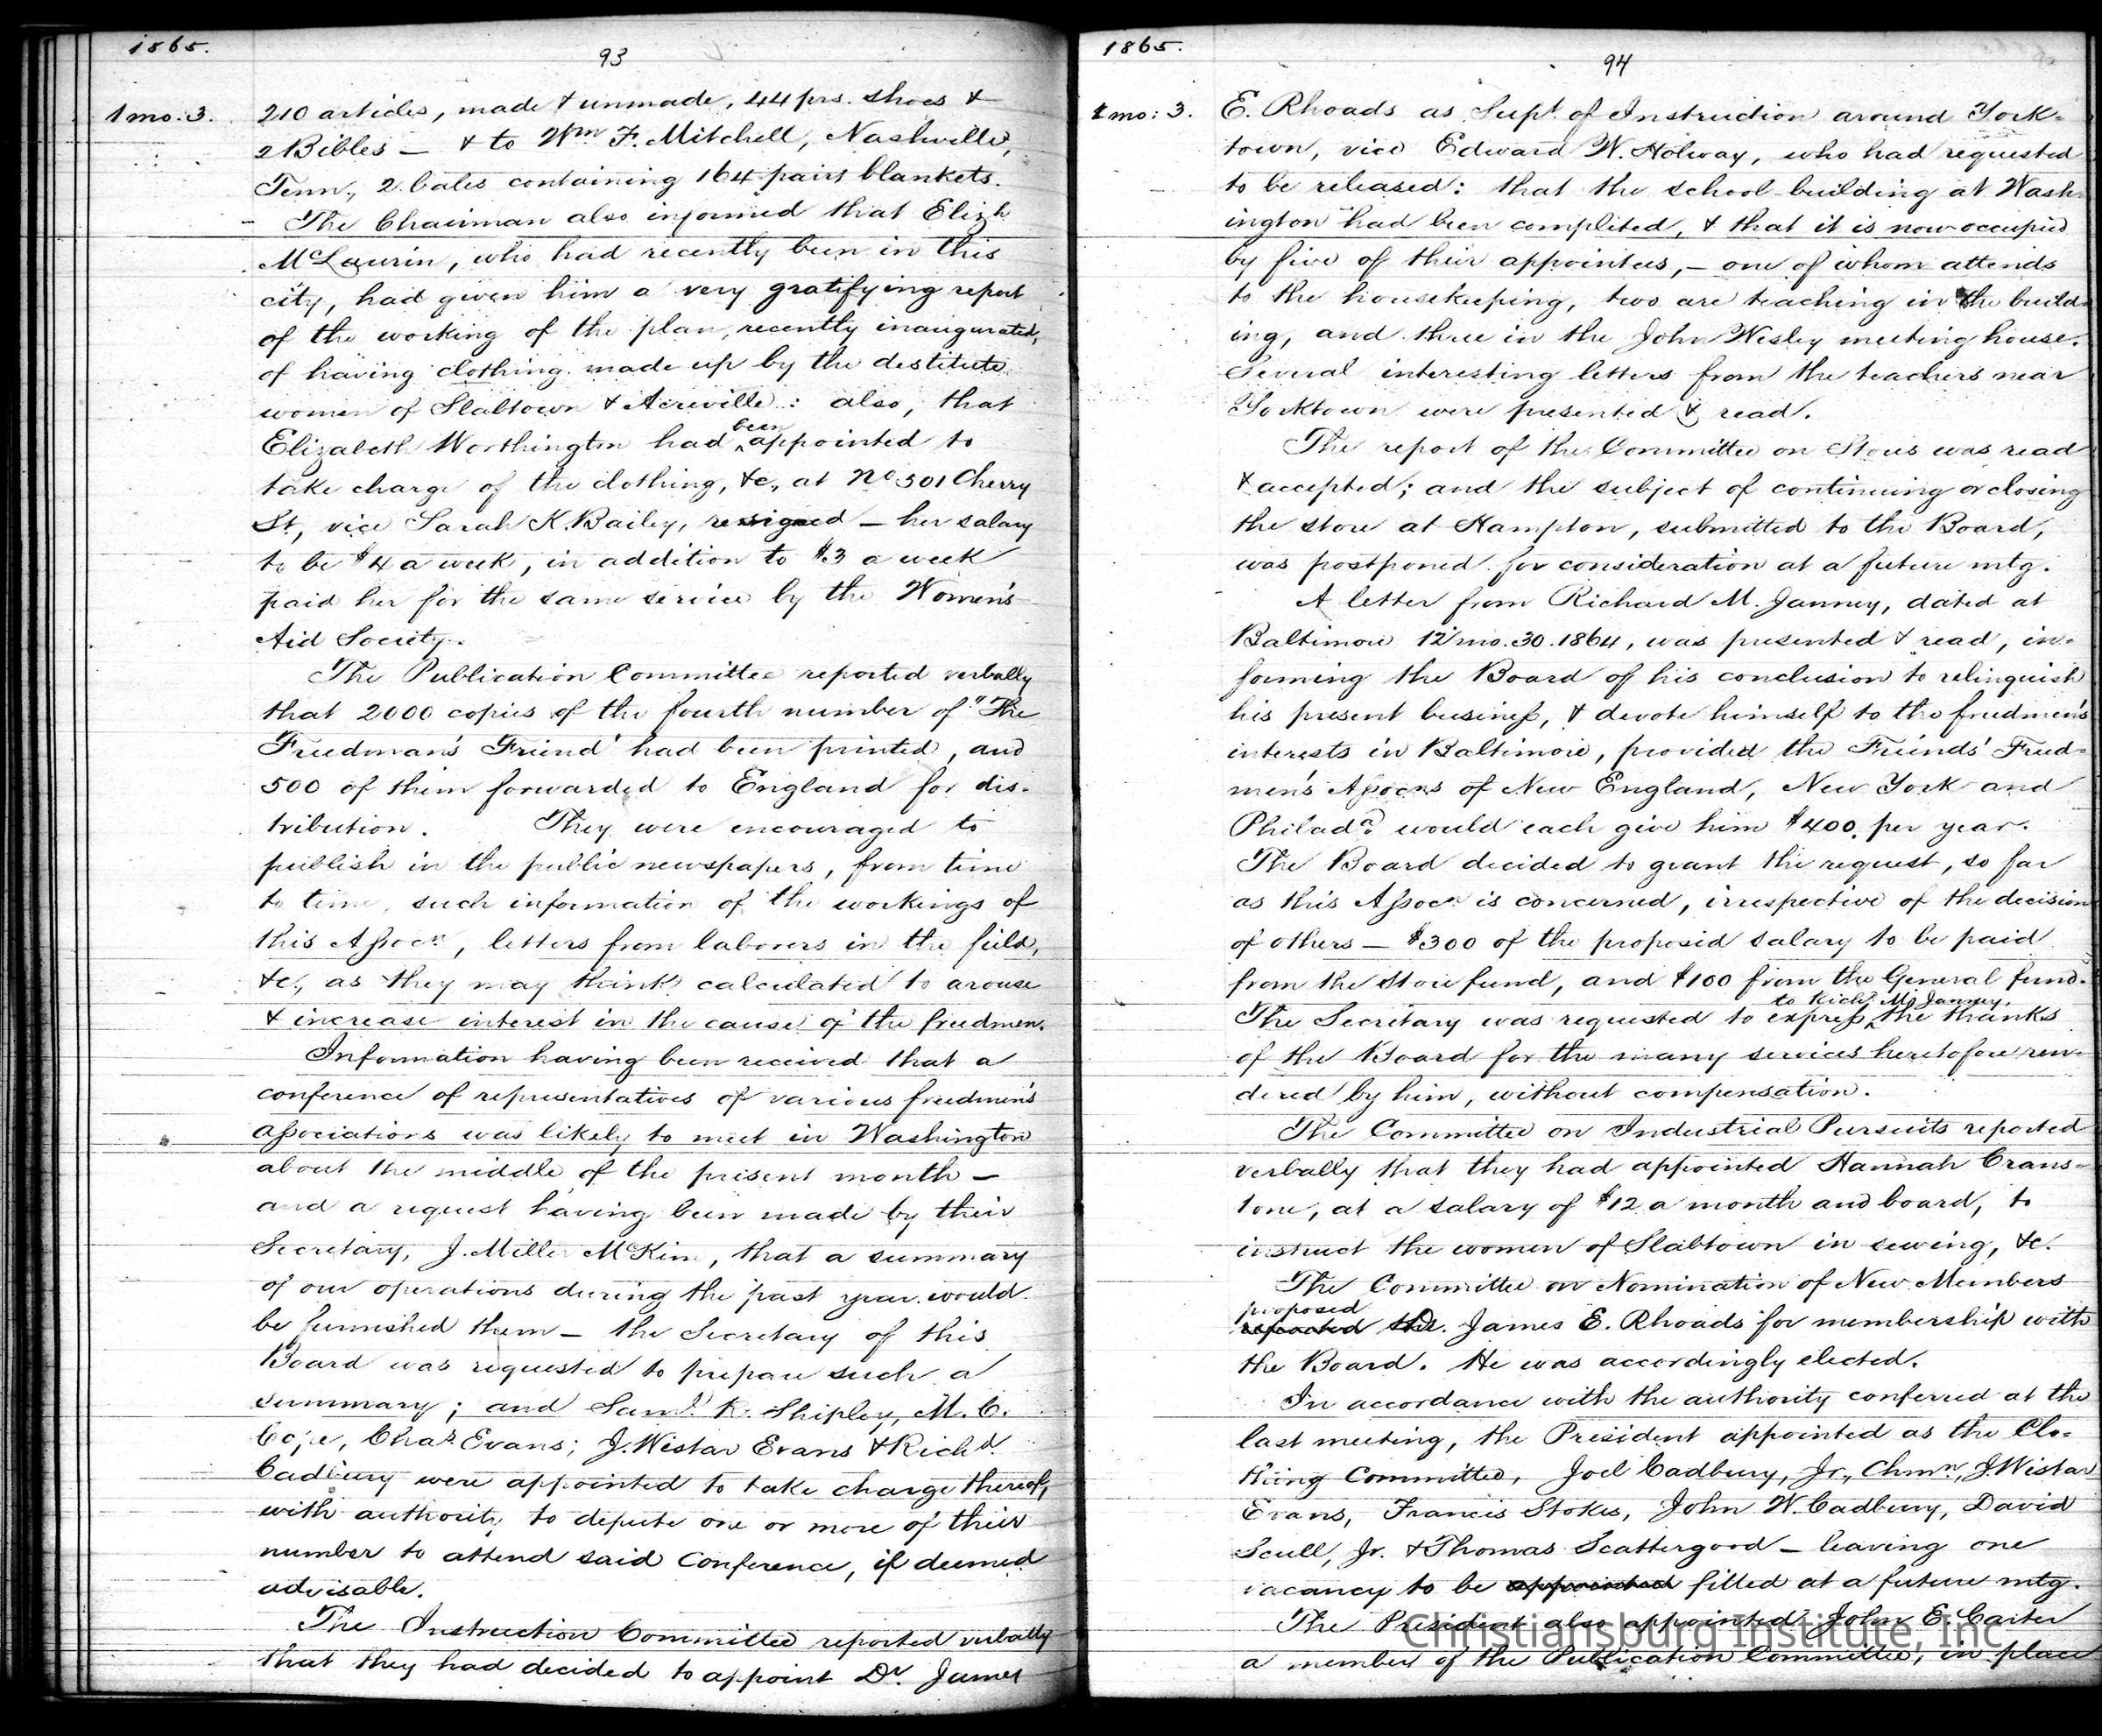 1865.
93
1 mo: 3.
210 articles, made & unmade, 44 prs. shoes &
2 Bibles — & to Wm F. Mitchell, Nashville,
Tenn., 2 bales containing 164 pairs blankets.
The Chairman also informed that Elizh
McLaurin, who had recently been in this
city, had given him a very gratifying report
of the working of the plan, recently inaugurated,
of having clothing made up by the destitute
women of Slabtown & Acreville: also, that
Elizabeth Worthington had been appointed to
take charge of the clothing, &c., at No 501 Cherry
St., vice Sarah K. Bailey, resigned — her salary
to be $4 a week, in addition to $3 a week
paid her for the same service by the Women's
Aid Society.
The Publication Committee reported verbally
that 2000 copies of the fourth number of "The
Freedman's Friend" had been printed, and
500 of them forwarded to England for dis-
tribution. They were encouraged to
publish in the public newspapers, from time
to time, such information of the workings of
this Assocn, letters from laborers in the field,
&c., as they may think calculated to arouse
& increase interest in the cause of the freedmen.
Information having been received that a
conference of representatives of various freedmen's
associations was likely to meet in Washington
about the middle of the present month —
and a request having been made by their
Secretary, J. Miller McKim, that a summary
of our operations during the past year would
be furnished them — the Secretary of this
Board was requested to prepare such a
summary; and Saml. R. Shipley, M. C.
Cope, Chas Evans, J. Wistar Evans & Richd
Cadbury were appointed to take charge thereof,
with authority to depute one or more of their
number to attend said Conference, if deemed
advisable.
The Instruction Committee reported verbally
that they had decided to appoint Dr. James
1865.
94
1 mo: 3.
E. Rhoads as Supt. of Instruction around York-
town, vice Edward W. Holway, who had requested
to be released: that the school building at Wash-
ington had been completed, & that it is now occupied
by five of their appointees, — one of whom attends
to the housekeeping, two are teaching in the build-
ing, and three in the John Wesley meeting house.
Several interesting letters from the teachers near
Yorktown were presented & read.
The report of the Committee on Stores was read
& accepted; and the subject of continuing or closing
the store at Hampton, submitted to the Board,
was postponed for consideration at a future mtg.
A letter from Richard M. Janney, dated at
Baltimore 12 mo. 30. 1864, was presented & read, in-
forming the Board of his conclusion to relinquish
his present business, & devote himself to the freedmen's
interests in Baltimore, provided the Friends' Freed-
men's Assocns of New England, New York and
Philada. would each give him $400. per year.
The Board decided to grant the request, so far
as this Assocn is concerned, irrespective of the decision
of others — $300 of the proposed salary to be paid
from the store fund, and $100 from the General fund.
The Secretary was requested to express to Richd M. Janney, the thanks
of the Board for the many services heretofore ren-
dered by him, without compensation.
The Committee on Industrial Pursuits reported
verbally that they had appointed Hannah Crans-
tone, at a salary of $12 a month and board, to
instruct the women of Slabtown in sewing, &c.
The Committee on Nomination of New Members
proposed
reported Dr. James E. Rhoads for membership with
the Board. He was accordingly elected.
In accordance with the authority conferred at the
last meeting, the President appointed as the Clo-
thing Committee, Joel Cadbury, Jr., Chmn, J. Wistar
Evans, Francis Stokes, John W. Cadbury, David
Scull, Jr. & Thomas Scattergood — leaving one
vacancy to be appointed filled at a future mtg.
The President also appointed John E. Carter
a member of the Publication Committee, in place
Christiansburg Institute, Inc